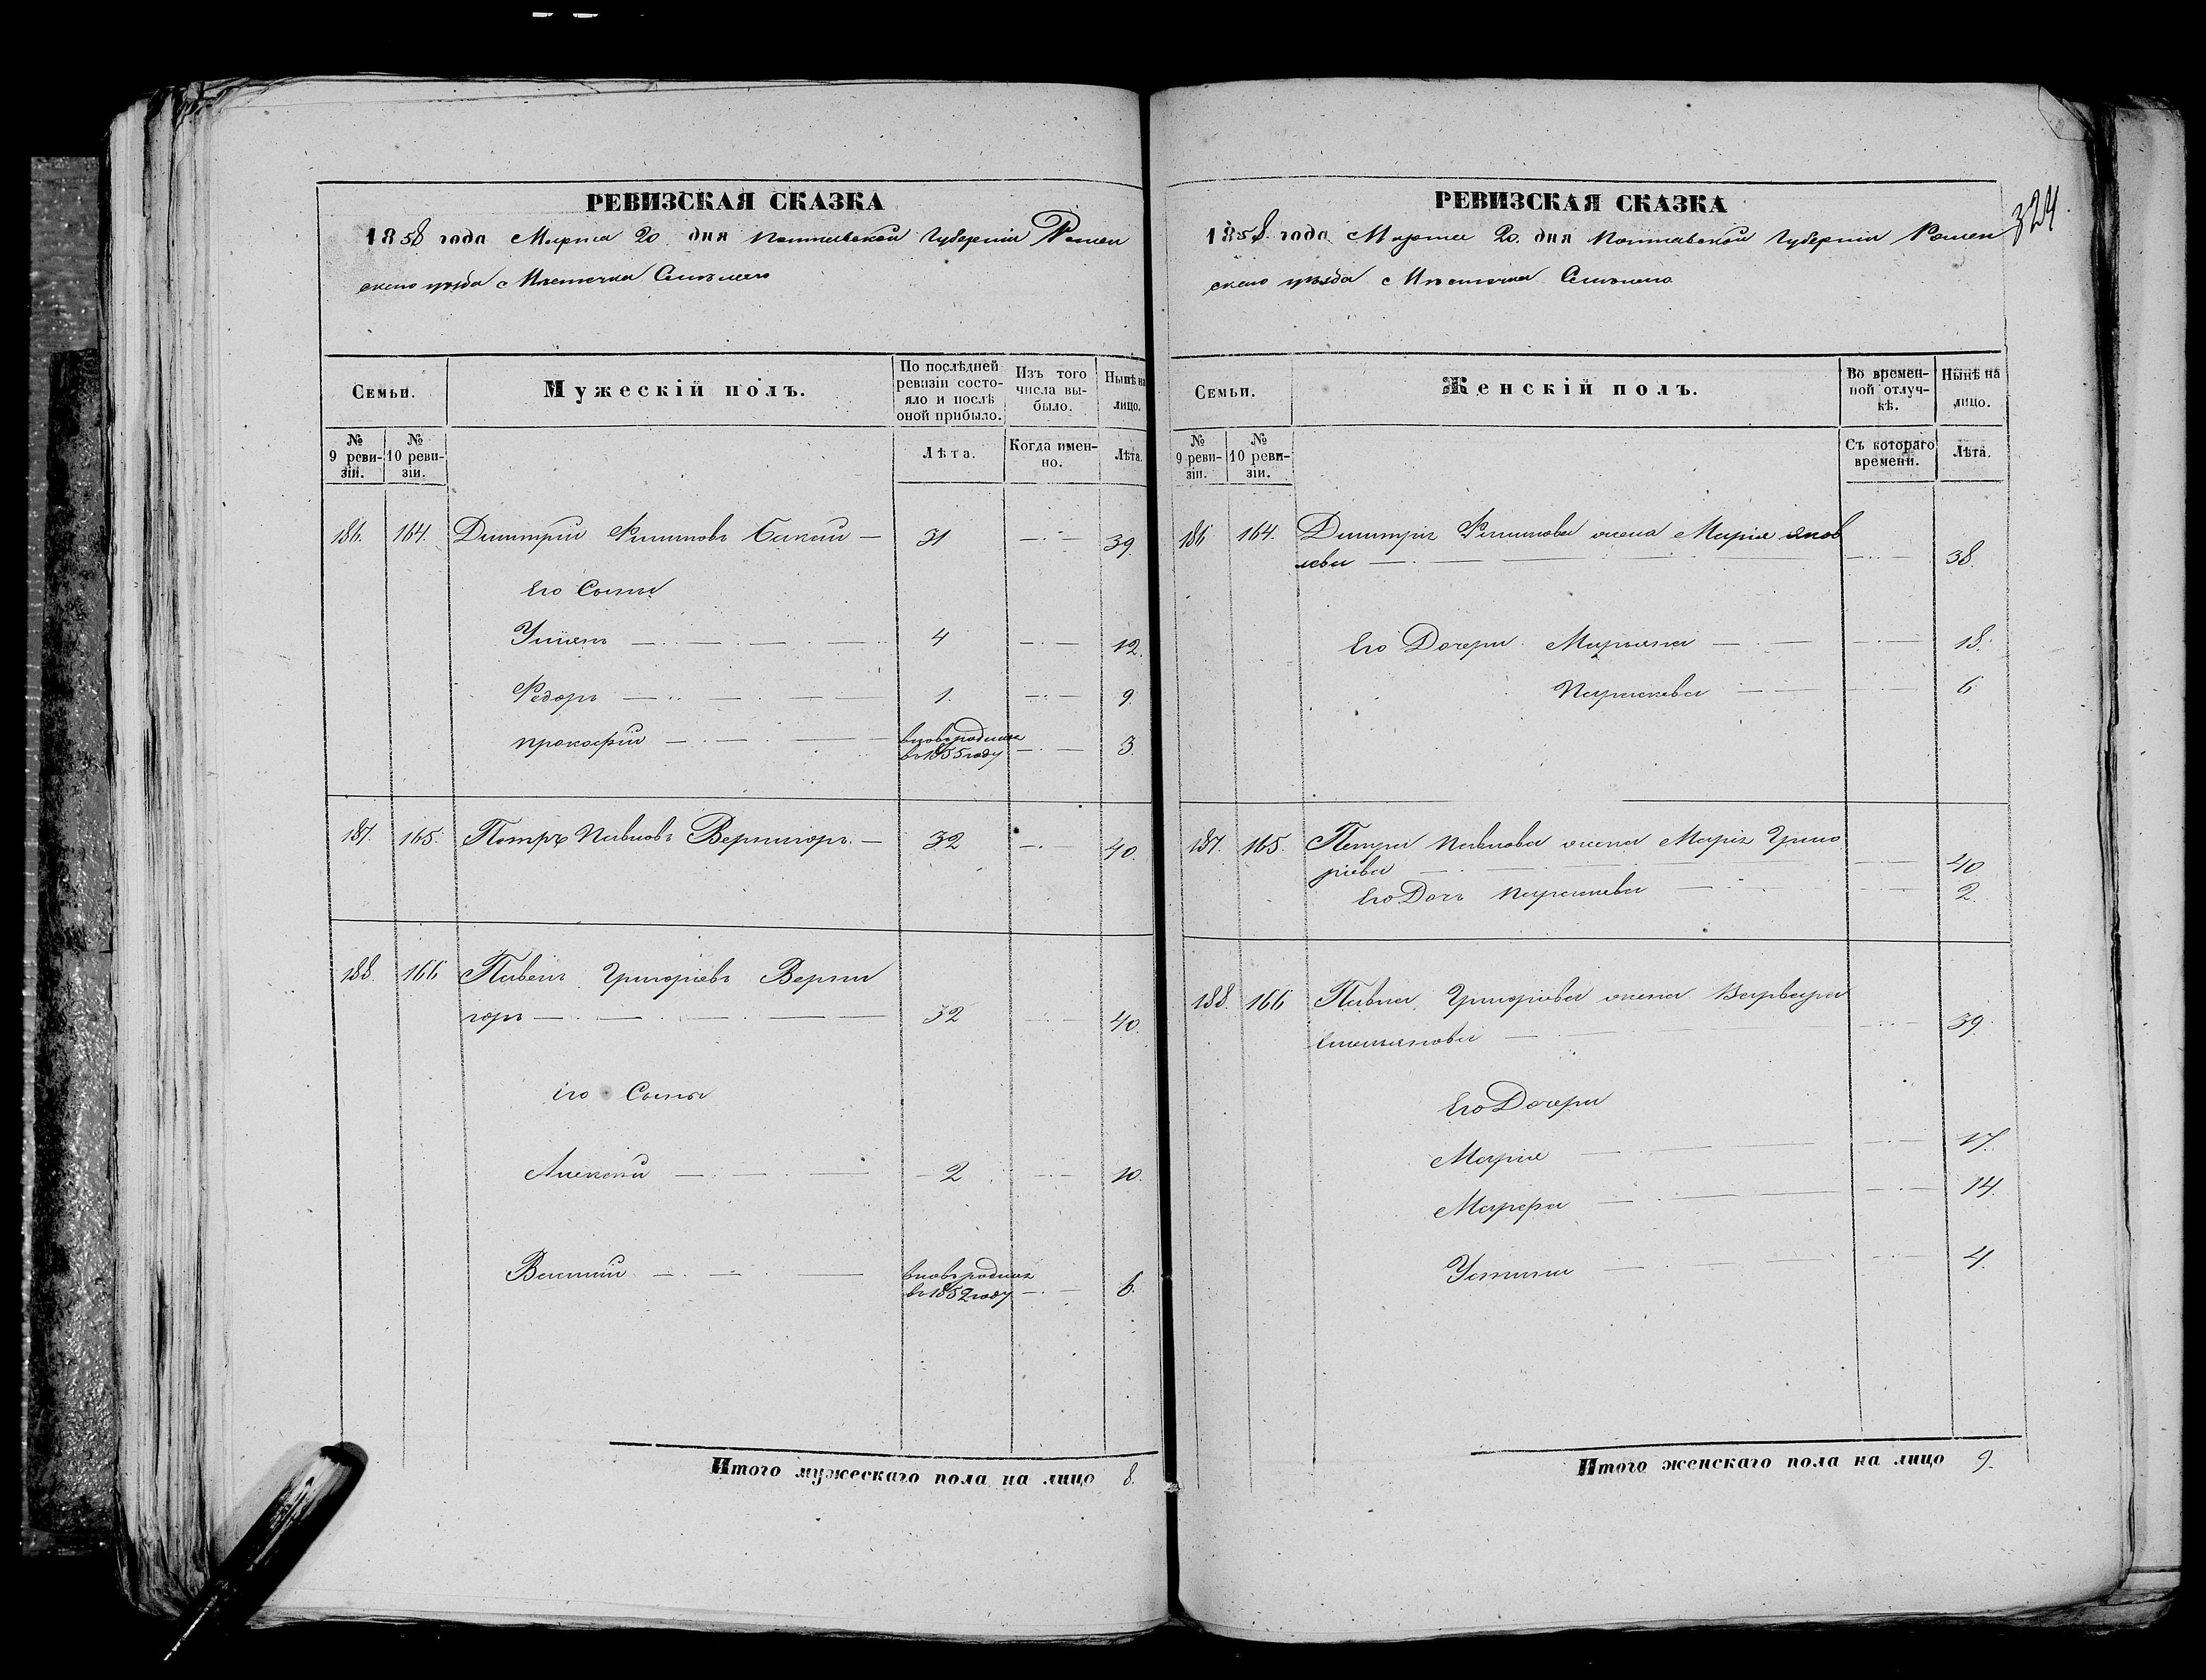 РЕВИЗСКАЯ СКАЗКА
1858 года Марта 20 дня Полтавской Губерніи Ромен
скаго уѣзда Мѣстечка Смѣлаго
Семьи.
Мужескій полъ.
По послѣдней ревизіи состояло и послѣ оной прибыло.
Изъ того числа выбыло.
Нынѣ на лицо.
№ 9 ревизіи.
№ 10 ревизіи.
Лѣта.
Когда именно.
Лѣта.
186. 164. Димитрий Филиповъ Бакай — 31 — 39.
Его Сыны
4 — 12.
Федоръ — 1. — 9.
прокофий — вновь родился
в 1855 году — 3.
187. 165. Петръ Павловъ Вернигоръ. — 32 — 40.
188. 166 Павелъ Григоріевъ Верни
горъ — 32 — 40.
его Сыны
Алексей — 2 — 10.
Василий — вновь родился
в 1852 году — 6.
Итого мужескаго пола на лицо 8.
324
РЕВИЗСКАЯ СКАЗКА
1858 года Марта 20. дня Полтавской Губерніи Ромен
скаго уѣзда Мѣстечка Смѣлаго
Семьи.
Женскій полъ.
Во временной отлучкѣ.
Нынѣ на лицо.
№ 9 ревизіи.
№ 10 ревизіи.
Съ котораго времени.
Лѣта.
186 164. Димитрія Филипова жена Марія Яков
лева — 38.
Его Дочери Марьяна — 18.
Параскева — 6
187. 165. Петра Павлова жена Марія Григо
ріева — 40
Его Дочь Параскева — 2.
188. 166 Павла Григоріева жена Варвара
Емельянова — 39.
Его Дочери
Марія — 17.
Марфа — 14.
Устина — 4.
Итого женскаго пола на лицо 9.